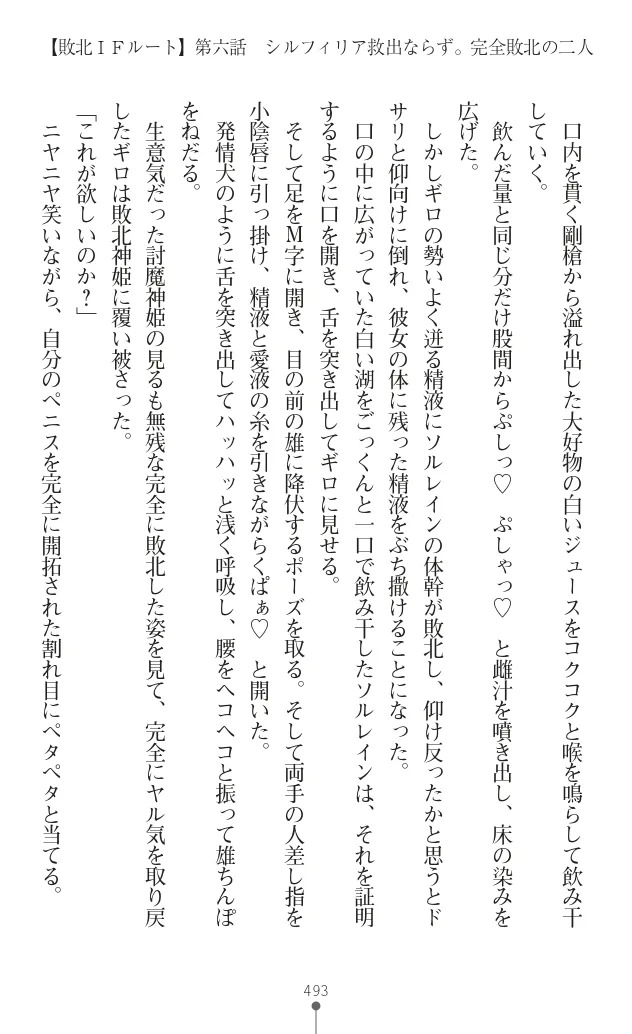 【敗北ＩＦルート】第六話　シルフィリア救出ならず。完全敗北の二人
　口内を貫く剛槍から溢れ出した大好物の白いジュースをコクコクと喉を鳴らして飲み干
していく。
　飲んだ量と同じ分だけ股間からぷしっ♡　ぷしゃっ♡　と雌汁を噴き出し、床の染みを
広げた。
　しかしギロの勢いよく迸る精液にソルレインの体幹が敗北し、仰け反ったかと思うとド
サリと仰向けに倒れ、彼女の体に残った精液をぶち撒けることになった。
　口の中に広がっていた白い湖をごっくんと一口で飲み干したソルレインは、それを証明
するように口を開き、舌を突き出してギロに見せる。
　そして足をＭ字に開き、目の前の雄に降伏するポーズを取る。そして両手の人差し指を
小陰唇に引っ掛け、精液と愛液の糸を引きながらくぱぁ♡　と開いた。
　発情犬のように舌を突き出してハッハッと浅く呼吸し、腰をヘコヘコと振って雄ちんぽ
をねだる。
　生意気だった討魔神姫の見るも無残な完全に敗北した姿を見て、完全にヤル気を取り戻
したギロは敗北神姫に覆い被さった。
「これが欲しいのか？」
　ニヤニヤ笑いながら、自分のペニスを完全に開拓された割れ目にペタペタと当てる。
493